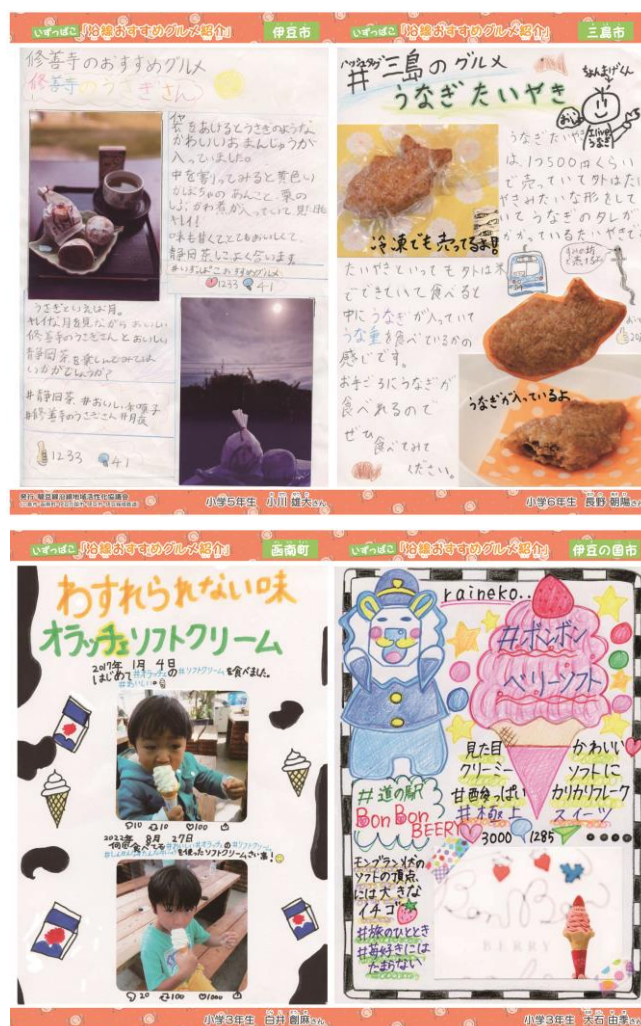 いずっぱこ「沿線おすすめグルメ紹介」
伊豆市
修善寺のおすすめグルメ
修善寺のうさぎさん
袋をあけるとうさぎのような
かわいいおまんじゅうが
入っていました。
中を割ってみると黄色い
かぼちゃのあんこと栗の
しぶかわ煮が入っていて、見た目も
キレイ!
味も甘くてとてもおいしくて、
静岡茶によく合います。
#いずっぱこおすすめグルメ
1233 41
うさぎといえば月。
キレイな月を見ながらおいしい
修善寺のうさぎさんとおいしい
静岡茶を楽しんでみては
いかがでしょうか?
#静岡茶 #おいしい和菓子
#修善寺のうさぎさん #月夜
1233 41
小学5年生 小川 雄大さん
いずっぱこ「沿線おすすめグルメ紹介」
三島市
ハッシュタグ
#三島のグルメ
うなぎたいやき
ちょんまげくん
うなぎたいやき
は、1つ500円くらい
で売っていて外はたい
やきみたいな形をして
いてうなぎのタレが
かかっているたいやきで
冷凍でも売ってるよ!
たいやきといっても外は米
でできていて食べると
中にうなぎが入っていて
うな重を食べているかの
感じです。
お手ごろにうなぎが
食べれるので
ぜひ
食べてみて
ください。
うなぎが入っているよ
小学6年生 長野 朝陽さん
いずっぱこ「沿線おすすめグルメ紹介」
函南町
わすれられない味
オラッチェソフトクリーム
2017年 1月 4日
はじめて#オラッチェの#ソフトクリームを食べました。
#おいしい
10 10 100
2022年 8月 27日
何回食べても#おいしい#オラッチェの#ソフトクリーム。
を使ったソフトクリームさい高!
20 100 1000
小学3年生 白井 創麻さん
いずっぱこ「沿線おすすめグルメ紹介」
伊豆の国市
raineko..
#ボンボン
ベリーソフト
見た目
クリーミー
甘酸っぱい
#極上
かわいい
ソフトに
カリカリフレーク
スイーツ
#道の駅
Bon Bon
BEERY
3000 1285
モンブラン状の
ソフトの頂点
には大きな
イチゴ
#旅のひととき
#苺好きには
たまらない
BERRY
小学3年生 大石 由季さん